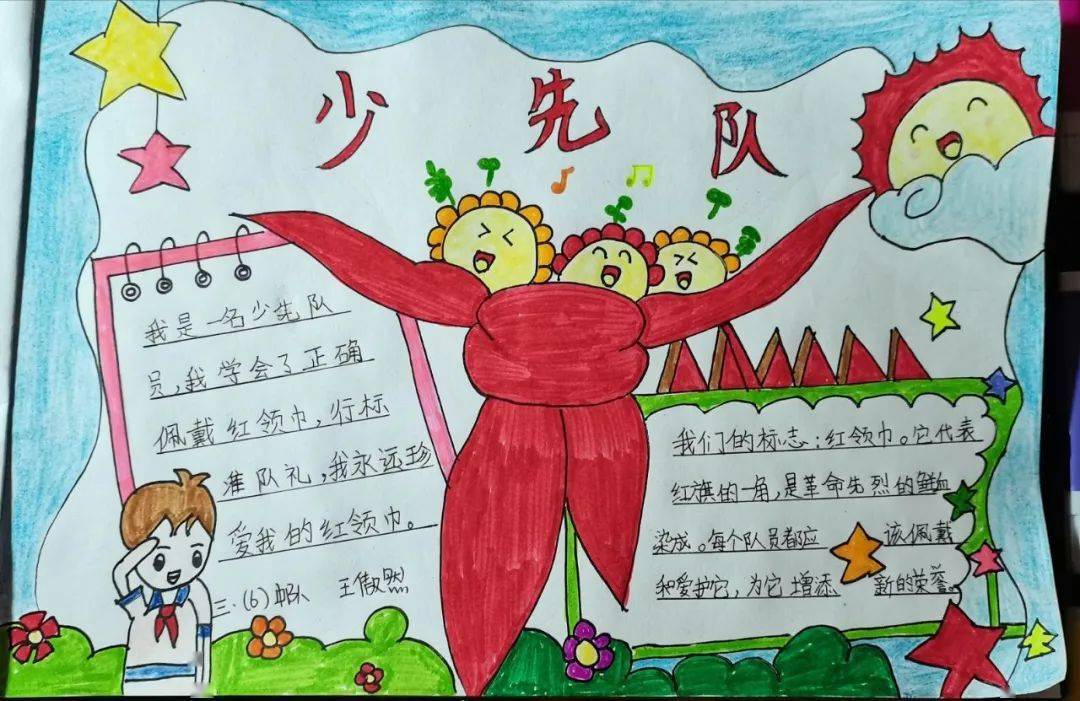 少先队
我是一名少先队
员,我学会了正确
佩戴红领巾,行标
准队礼,我永远珍
爱我的红领巾。
三·(6)中队 王傲然
我们的标志:红领巾。它代表
红旗的一角,是革命先烈的鲜血
染成。每个队员都应 该佩戴
和爱护它,为它增添 新的荣誉。